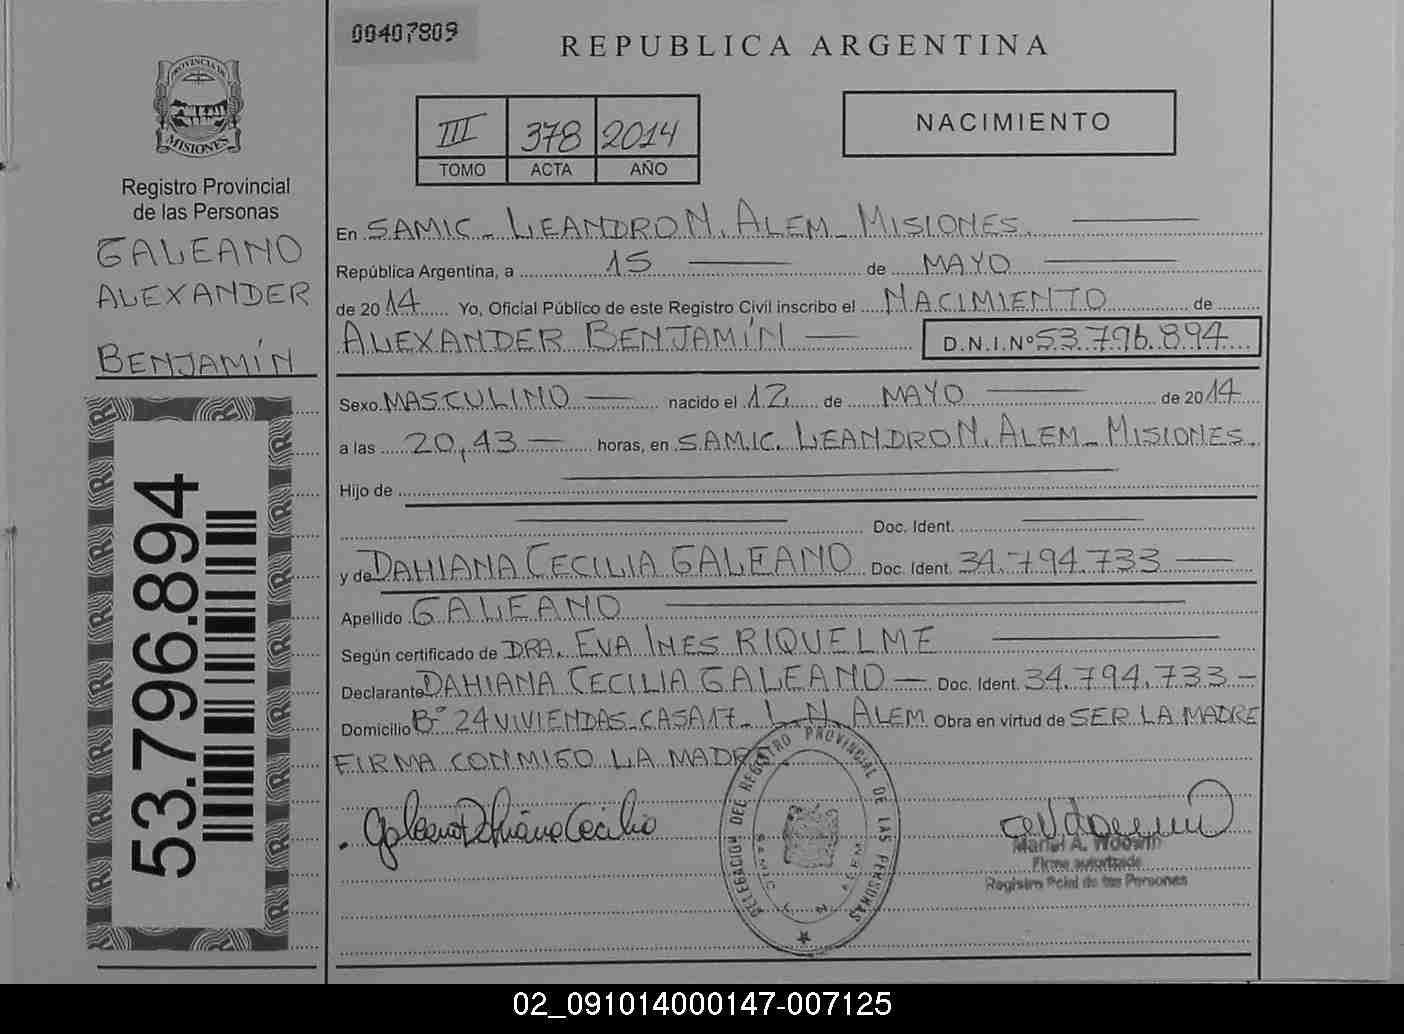 00407809
REPUBLICA ARGENTINA
PROVINCIA DE
MISIONES
Registro Provincial
de las Personas
GALEANO
ALEXANDER
BENJAMÍN
53.796.894
III 378 2014
TOMO ACTA AÑO
NACIMIENTO
En SAMIC - LEANDRO N. ALEM - MISIONES.
República Argentina, a 15 de MAYO
de 2014 Yo, Oficial Público de este Registro Civil inscribo el NACIMIENTO de
ALEXANDER BENJAMÍN — D.N.I.Nº 53.796.894
Sexo MASCULINO — nacido el 12 de MAYO de 2014
a las 20,43 — horas, en SAMIC. LEANDRO N. ALEM - MISIONES.
Hijo de
Doc. Ident.
y de DAHIANA CECILIA GALEANO Doc. Ident. 34.794.733 —
Apellido GALEANO
Según certificado de DRA. EVA INES RIQUELME
Declarante DAHIANA CECILIA GALEANO — Doc. Ident. 34.794.733 -
Domicilio Bº 24 VIVIENDAS - CASA 17 - L. N. ALEM Obra en virtud de SER LA MADRE
FIRMA CONMIGO LA MADRE
Galeano Dahiana Cecilia
DELEGACION DEL REGISTRO PROVINCIAL DE LAS PERSONAS
SAMIC L. N. ALEM
Firma autorizada
Registro Pcial de las Personas
02_091014000147-007125